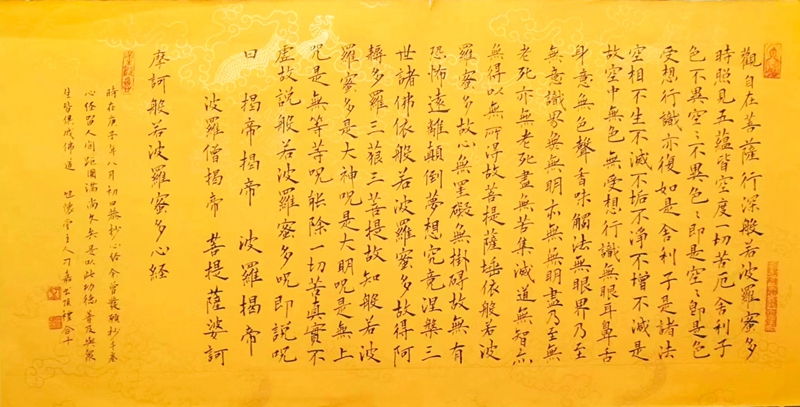 觀自在菩薩行深般若波羅蜜多
時照見五蘊皆空度一切苦厄舍利子
色不異空空不異色色即是空空即是色
受想行識亦復如是舍利子是諸法
空相不生不滅不垢不淨不增不減是
故空中無色無受想行識無眼耳鼻舌
身意無色聲香味觸法無眼界乃至
無意識界無無明亦無無明盡乃至無
老死亦無老死盡無苦集滅道無智亦
無得以無所得故菩提薩埵依般若波
羅蜜多故心無罣礙無掛碍故無有
恐怖遠離顛倒夢想究竟涅槃三
世諸佛依般若波羅蜜多故得阿
耨多羅三藐三菩提故知般若波
羅蜜多是大神咒是大明咒是無上
咒是無等等咒能除一切苦真實不
虛故說般若波羅蜜多咒即說咒
曰 揭帝揭帝 波羅揭帝
波羅僧揭帝 菩提薩婆訶
摩訶般若波羅蜜多心經
時在庚子年八月初日恭抄心經今當發願抄千卷
心經留人間距圓滿尚欠矣是以此功德普及與眾
生皆俱成佛道